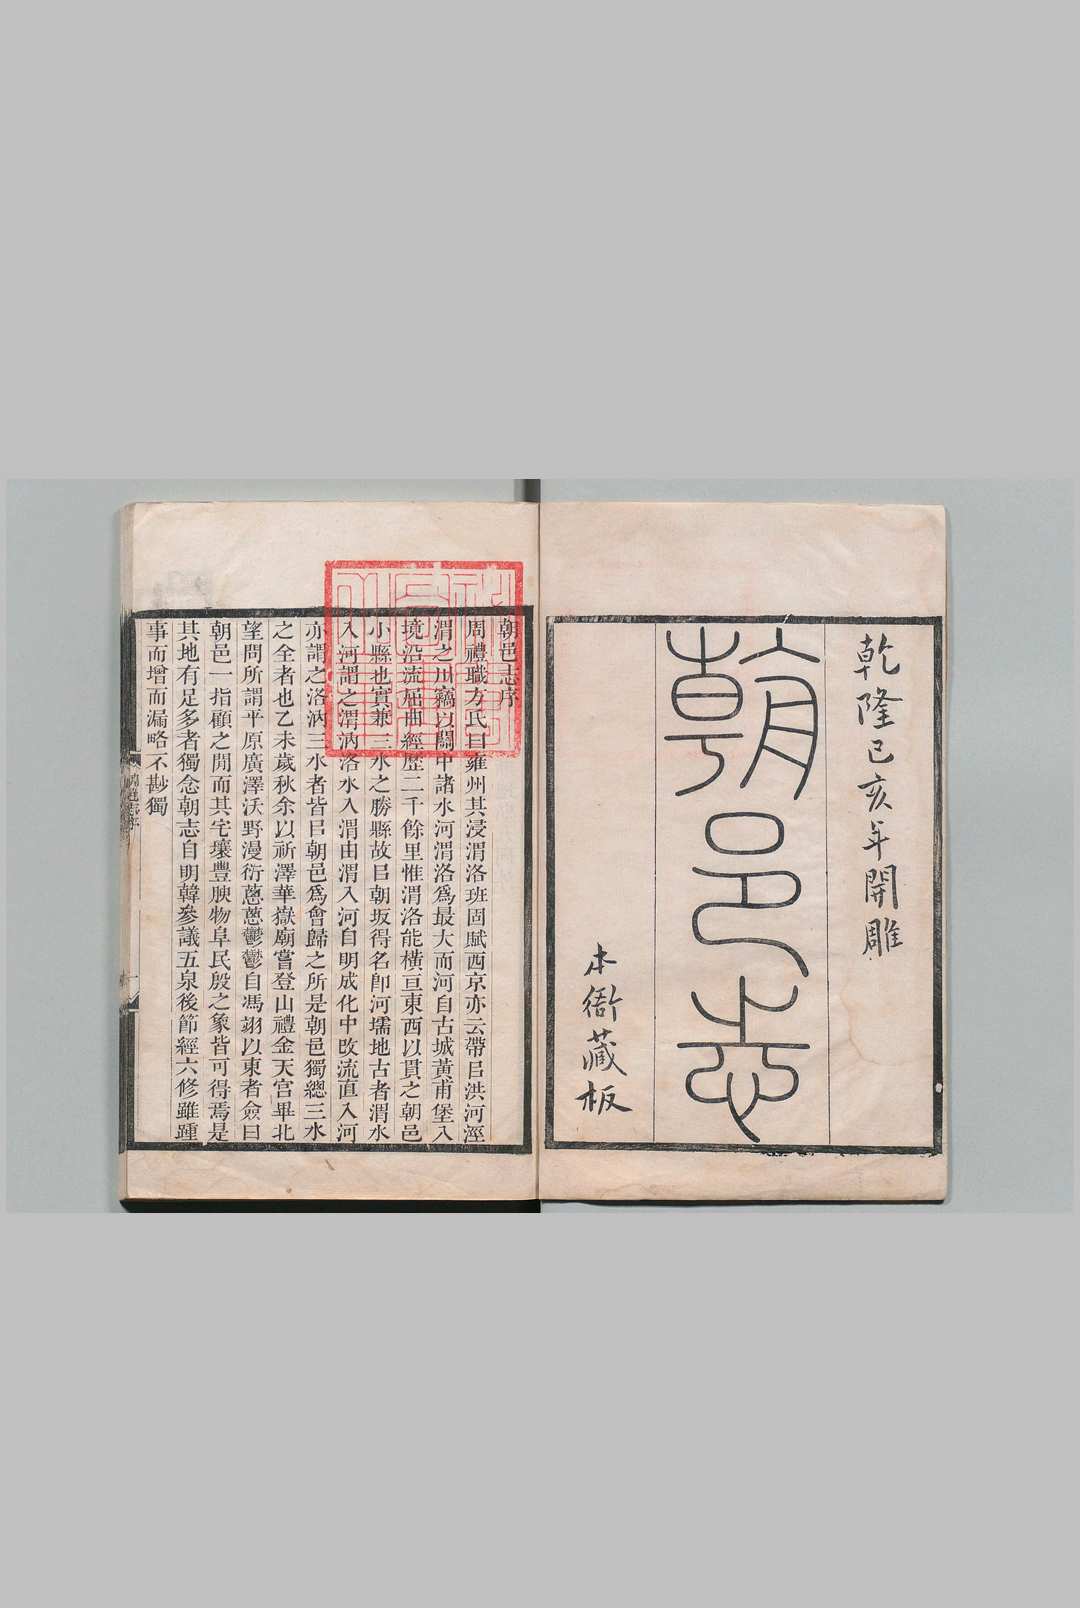 乾隆己亥年開雕
朝邑志
本衙藏板
朝邑志序
周禮職方氏曰雍州其浸渭洛班固賦西京亦云帶㠯洪河涇
渭之川竊以關中諸水河渭洛爲最大而河自古城黃甫堡入
境沿流屈曲經歷二千餘里惟渭洛能橫亘東西以貫之朝邑
小縣也實兼三水之勝縣故㠯朝坂得名卽河壖地古者渭水
入河謂之渭汭洛水入渭由渭入河自明成化中改流直入河
亦謂之洛汭三水者皆㠯朝邑爲會歸之所是朝邑獨總三水
之全者也乙未歲秋余以祈澤華嶽廟嘗登山禮金天宫畢北
望問所謂平原廣澤沃野漫衍蔥蔥鬱鬱自馮翊以東者僉曰
朝邑一指顧之閒而其宅壤豐腴物阜民殷之象皆可得焉是
其地有足多者獨念朝志自明韓參議五泉後節經六修雖踵
事而增而漏略不尠獨